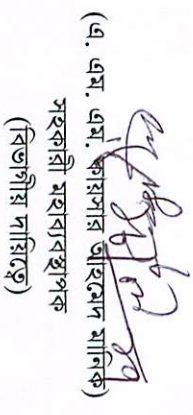 (এ. এম. এম. কায়সার আহমেদ মানিক)
সহকারী মহাব্যবস্থাপক
(বিভাগীয় দায়িত্বে)